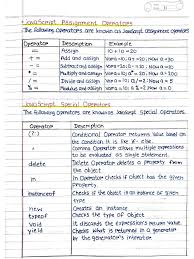 JavaScript Assignment Operators
The following operators are known as JavaScript assignment operators
Operator Description Example
= Assign 10+10=20
+= Add and assign Var a=10; a+=20; Now a=30
-= Subtract and assign Var a=20; a-=10; Now a=10
*= Multiply and assign
/= Divide and assign Var a=10; a/=2; Now a=5
%= Modulus and assign Var a=10; a%=2; Now a=0
JavaScript Special Operators
The following operators are known as JavaScript special operators.
Operator Description
(?:) Conditional Operator returns value based on
the condition. It is like if-else.
, Comma Operator allows multiple expressions
to be evaluated as single statement.
delete Delete Operator deletes a property from
the object
in In Operator checks if object has the given
property.
instanceof Checks if the object is an instance of given
type
new creates an instance
typeof Checks the type of object
void It discards the expression's return value
yield Checks what is returned in a generator
by the generator's iterator